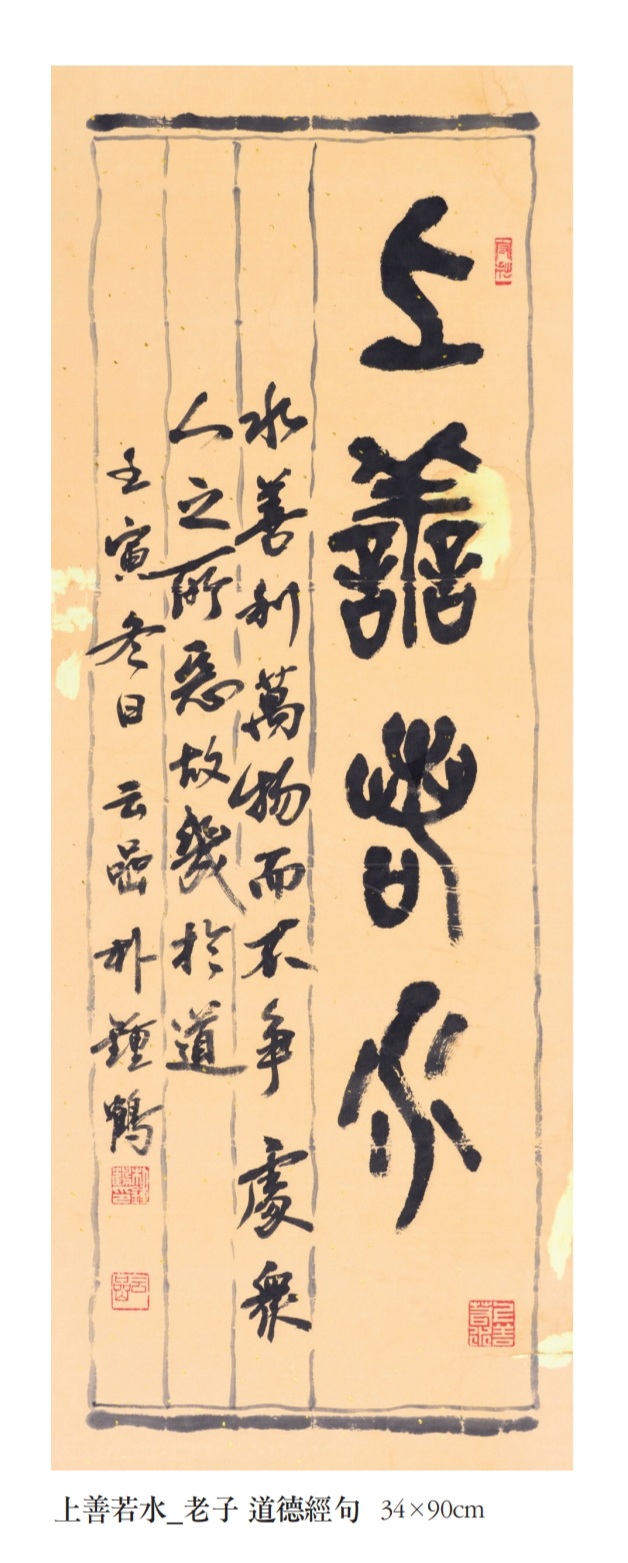 上善若水
水善利萬物而不爭處衆
人之所惡故幾於道
壬寅冬日 云嵒 朴鍾鶴
上善若水_老子 道德經句 34×90cm